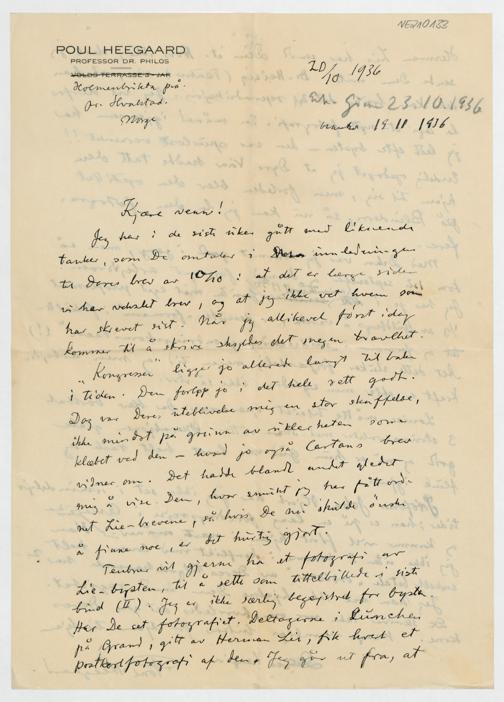 NEA10133
POUL HEEGAARD
PROFESSOR DR. PHILOS
VOLDS TERRASSE 3 - JAR
Holmenbrikta på
pr. Hvalstad.
Norge
20/10 1936
23.10.1936
19 11 1936
Kjære venn!
Jeg har i de siste uker gått med liknende
tanker, som De omtaler i innledningen
til Deres brev av 10/10: at det er længe siden
vi har vekslet brev, og at jeg ikke vet hvem som
har skrevet sist. Når jeg allikevel først idag
kommer til å skrive skyldes det megen travlhet.
"Kongressen" ligger jo allerede langt tilbake
i tiden. Den forløp jo i det hele rett godt.
Dog var Deres uteblivelse mig en stor skuffelse,
ikke mindst på grunn av usikkerheten som
klæbet ved den – hvad jo også Cartans brev
vidner om. Det hadde blandt andet glædet
mig å vise Dem, hvor smukt jeg har fått ord-
net Lie-brevene, så hvis De nu skulde ønske
å finne noe, er det hurtig gjort.
Teubner vil gjerne ha et fotografi av
Lie-bysten, til å sette som tittelbillede i siste
bind (II). Jeg er ikke særlig begeistret for bysten.
Har De set fotografiet. Deltagerne i lunschen
på Grand, gitt av Herman Lie, fik hvert et
postkortfotografi af den. Jeg går ut fra, at